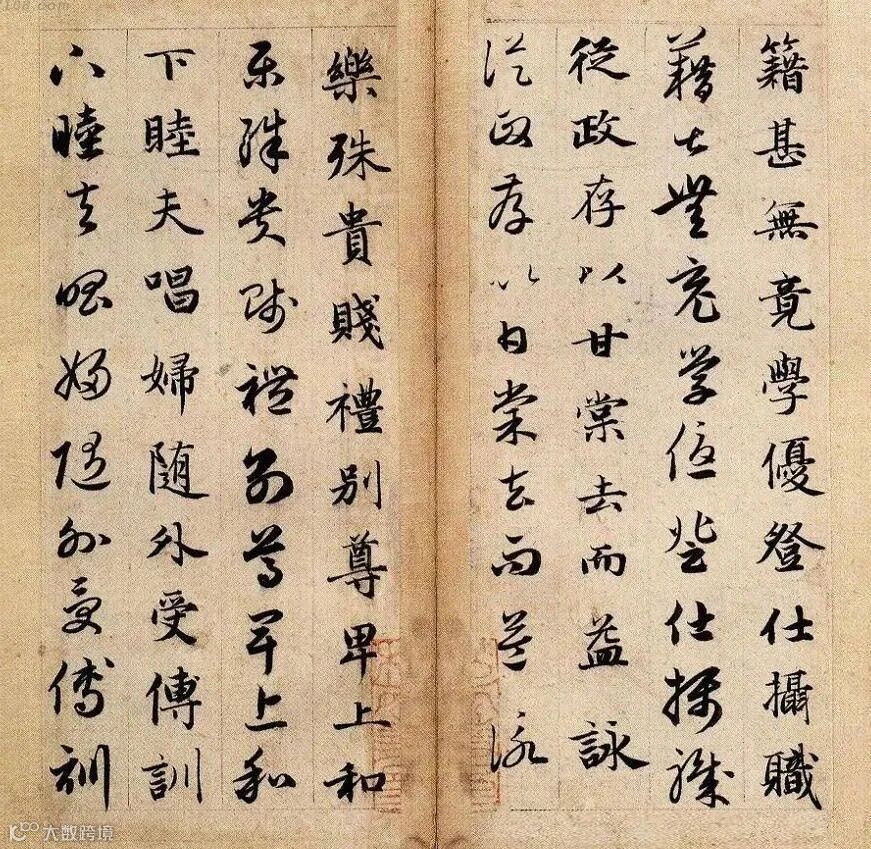 籍甚無竟學優登仕攝職
藉甚無竟学優登仕攝職
從政存以甘棠去而益詠
從政存以甘棠去而益詠
樂殊貴賤禮別尊卑上和
樂殊貴賤禮別尊卑上和
下睦夫唱婦随外受傅訓
下睦夫唱婦随外受傅訓
大数跨境